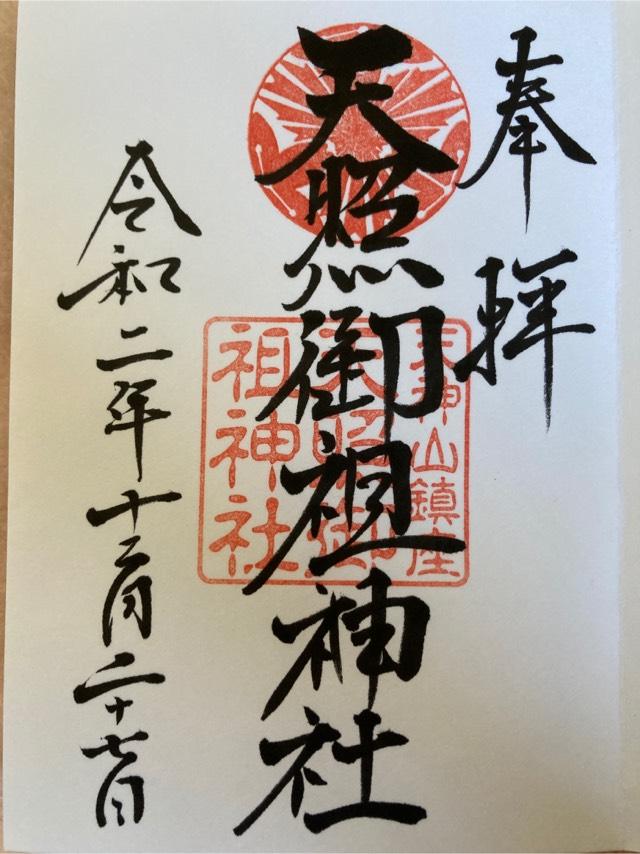 奉拝
天照御祖神社
天神山鎮座
天照御
祖神社
令和二年十二月二十七日